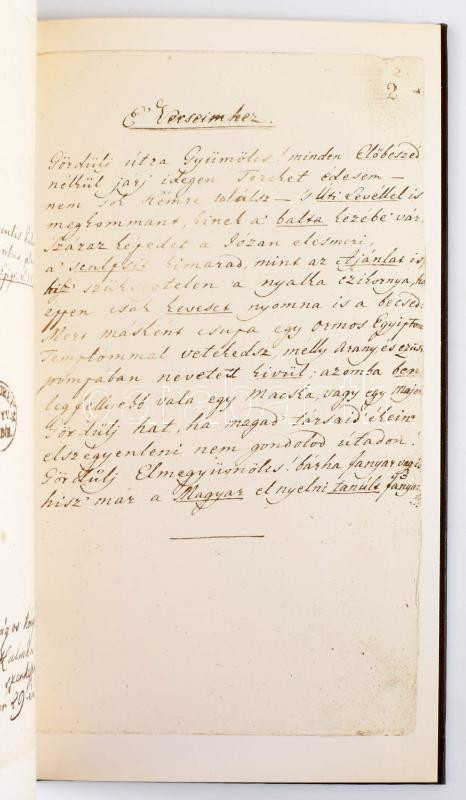 2
2
E' Verseimhez.
Gördülj útra Gyümölcs! minden Előbeszéd
nélkül járj idegen Téreket édesem —
nem sok Rémre találsz — 's Uti Levéllel is
megrommant, kinek a' balta kezébe vár.
Száraz képedet a' Józan elesméri,
a' sculpsit kimarad, mint az Ajánlat is,
szükségtelen a' nyalka czikornya, ha
éppen csak keveset nyomna is a' becsed.
Mert másként csupa egy ormos Egyiptom
Templommal vetekedsz, melly Arany, és ezüst
pompában nevetett kivül; azomba ben
legfellyebb vala egy Macska, vagy egy Majom
Gördülj hát, ha magad társaid ékein
elszégyenleni nem gondolod útadon.
Gördülj Elmegyümölcs! bárha fanyar vagy is
hisz már a' Magyar elnyelni tanúlt fanyart
29